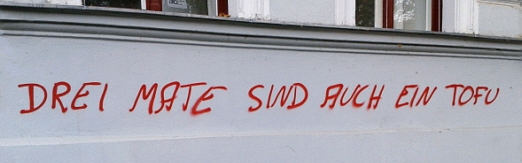 DREI MATE SIND AUCH EIN TOFU